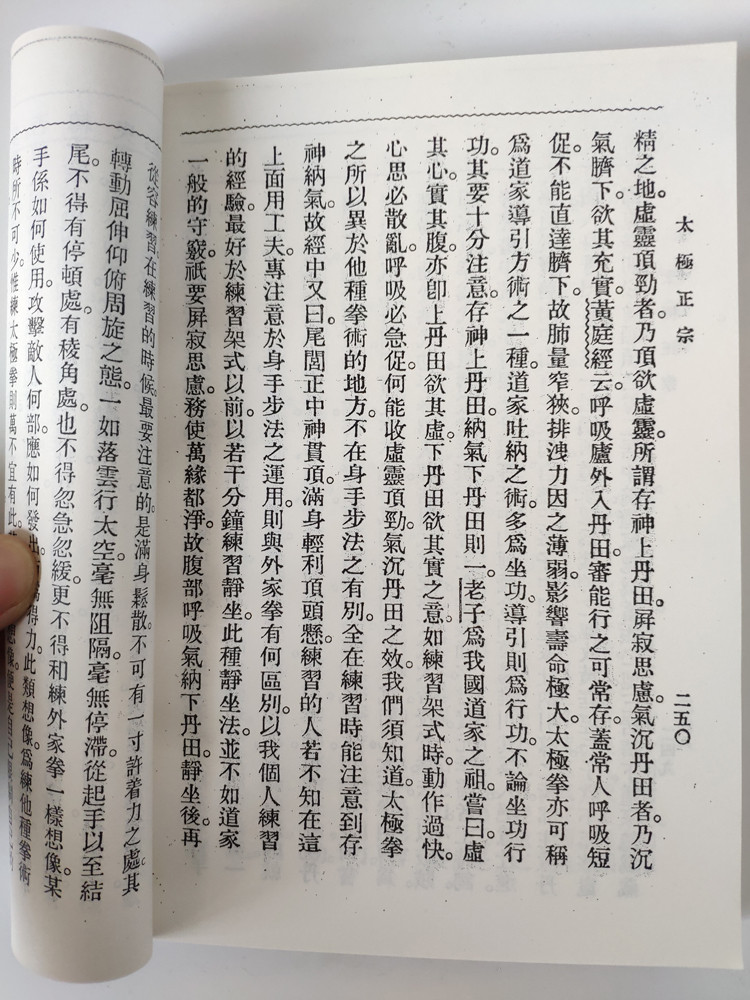 太極正宗
二五〇
精之地。虛靈頂勁者。乃頂欲虛靈。所謂存神上丹田。屏寂思慮。氣沉丹田者。乃沉
氣臍下。欲其充實。黃庭經云。呼吸廬外入丹田。審能行之可常存。蓋常人呼吸短
促。不能直達臍下。故肺量窄狹。排洩力因之薄弱。影響壽命極大。太極拳亦可稱
爲道家導引方術之一種。道家吐納之術。多爲坐功。導引則爲行功。不論坐功行
功。其要十分注意。存神上丹田。納氣下丹田則一。老子爲我國道家之祖。嘗曰。虛
其心。實其腹。亦卽上丹田欲其虛。下丹田欲其實之意。如練習架式時。動作過快。
心思必散亂。呼吸必急促。何能收虛靈頂勁。氣沉丹田之效。我們須知道。太極拳
之所以異於他種拳術的地方。不在身手步法之有別。全在練習時能注意到存
神納氣。故經中又曰。尾閭正中神貫頂。滿身輕利頂頭懸。練習的人。若不知在這
上面用工夫。專注意於身手步法之運用。則與外家拳有何區別。以我個人練習
的經驗。最好於練習架式以前。以若干分鐘練習靜坐。此種靜坐法。並不如道家
一般的守竅。祇要屏寂思慮。務使萬緣都淨。故腹部呼吸氣納下丹田。靜坐後。再
從容練習。在練習的時候。最要注意的。是滿身鬆散。不可有一寸許着力之處。其
轉動屈伸仰俯周旋之態。一如落雲行太空。毫無阻隔。毫無停滯。從起手以至結
尾。不得有停頓處。有稜角處。也不得忽急忽緩。更不得和練外家拳一樣想像。某
手係如何使用。攻擊敵人何部。應如何發出 得力。此類想像。爲練他種拳術
時所不可少。惟練太極拳則萬不宜有此